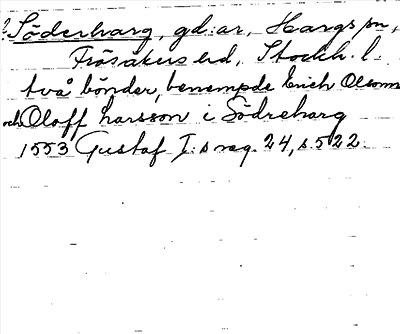 ? Söderharg, gd:ar, Hargs sn,
Frösåkers hd, Stockh. l.
två bönder, benempde Erich Olsonn
och Oloff Larsson i Södreharg
1553 Gustaf I:s reg. 24, s. 522.